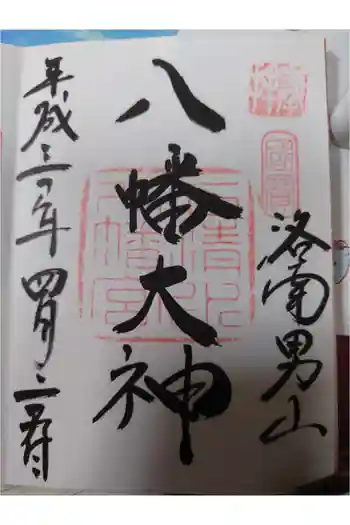 洛南男山
國寶
八幡大神
石清水
八幡宮
平成三十年 四月